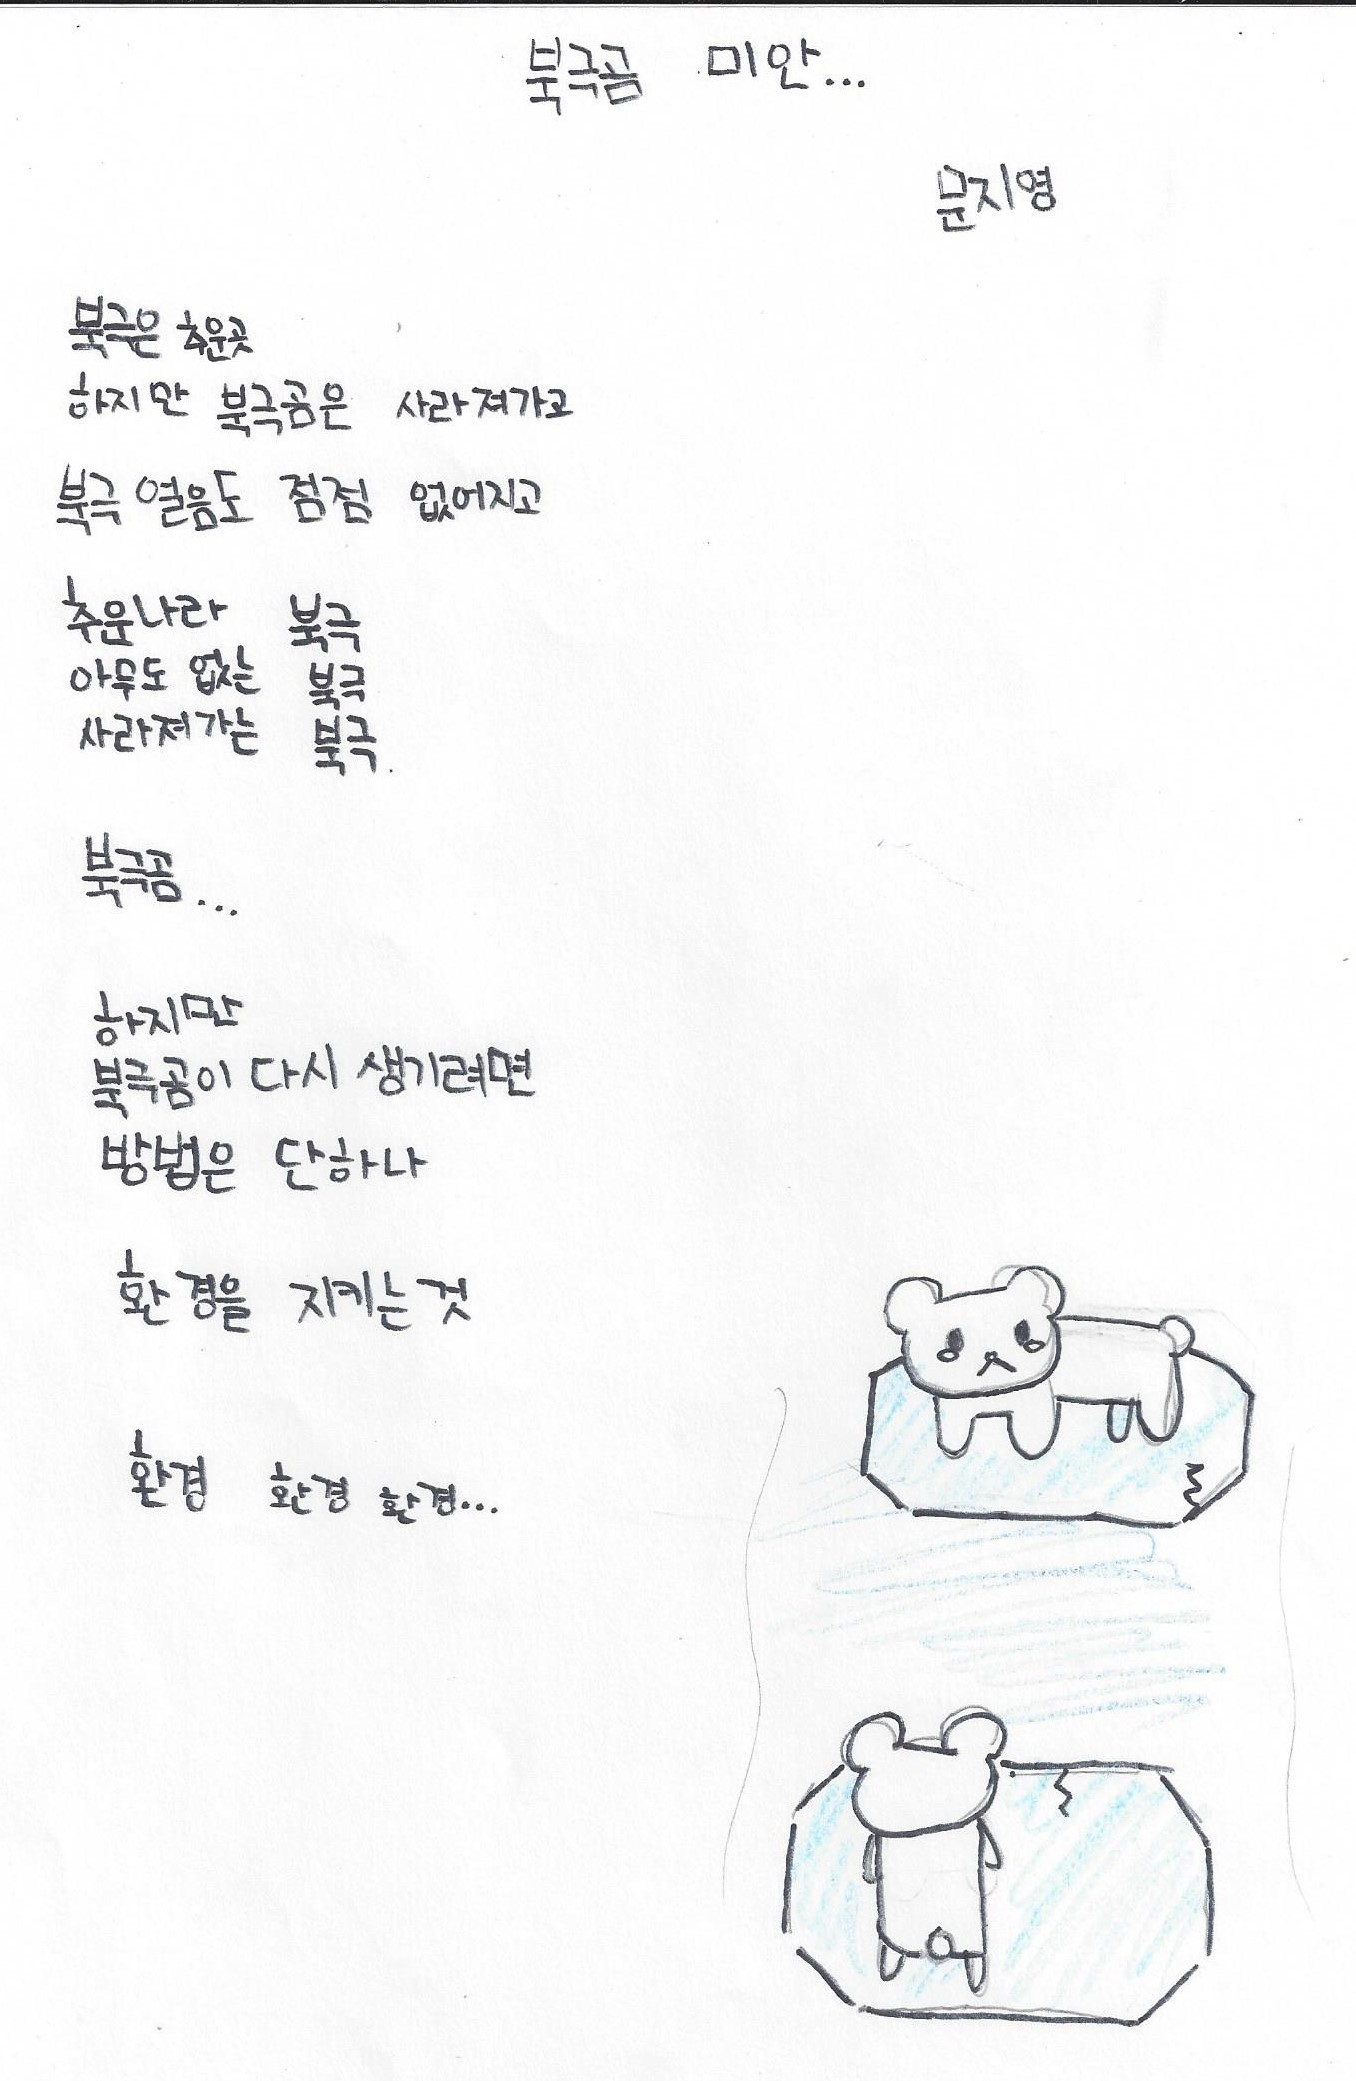 북극곰 미안...
문지영
북극은 추운곳
하지만 북극곰은 사라져가고
북극 얼음도 점점 없어지고
추운나라 북극
아무도 없는 북극
사라져가는 북극.
북극곰...
하지만
북극곰이 다시 생기려면
방법은 단하나
환경을 지키는것
환경 환경 환경...